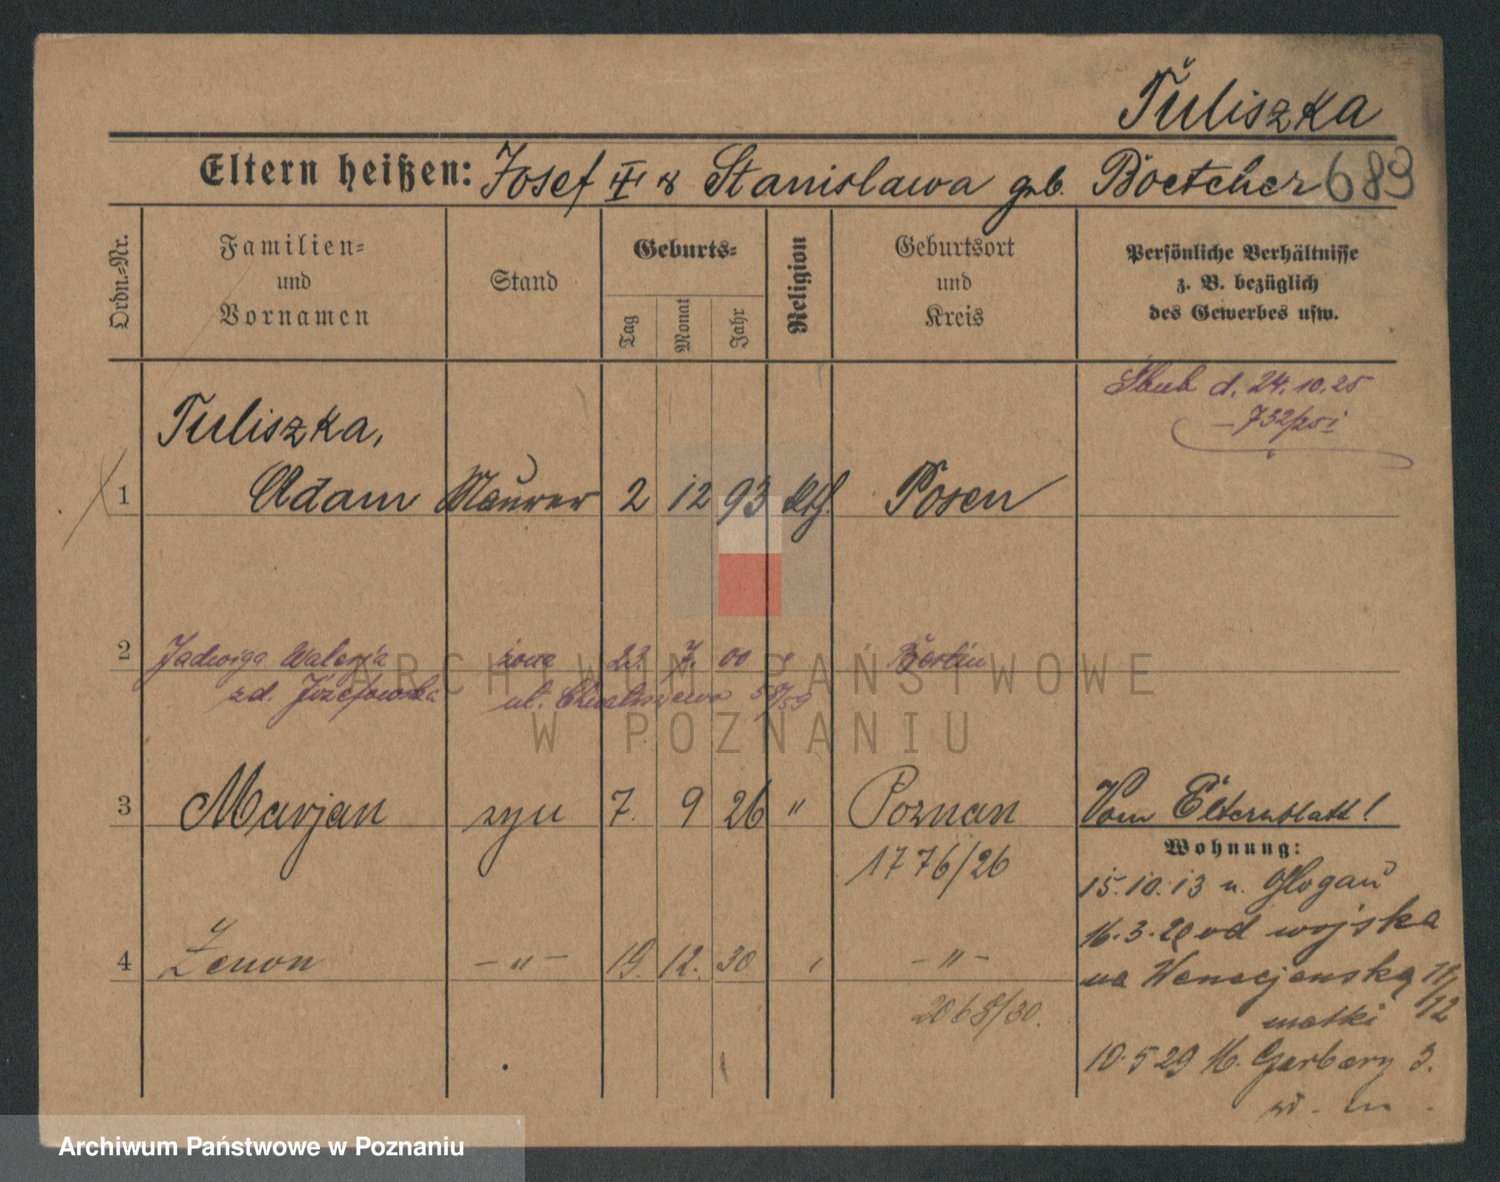 Tuliszka
Eltern heißen: Josef III & Stanislawa geb. Boetcher 683
Ordn.-Nr.
Familien- und Vornamen
Stand
Geburts-
Tag
Monat
Jahr
Religion
Geburtsort und Kreis
Persönliche Verhältnisse z. B. bezüglich des Gewerbes usw.
Ślub d. 24.10.25
Tuliszka,
1 Adam Maurer 2 12 93 kth. Posen
2 Jadwiga Walerja żona 23. 7. 00 " Berlin
zd. Józefowska ul. Chwaliszewo 58/59
3 Marjan syn 7. 9 26 " Poznan Vom Elternblatt!
1776/26
Wohnung:
15.10.13 n. Glogau
16.3.20 od wojska
4 Zenon -"- 19. 12. 30 " -"-
na Wenecjanską 11/12
2068/30.
matki
10.5 29 M. Garbary 3.
ARCHIWUM PAŃSTWOWE
W POZNANIU
Archiwum Państwowe w Poznaniu